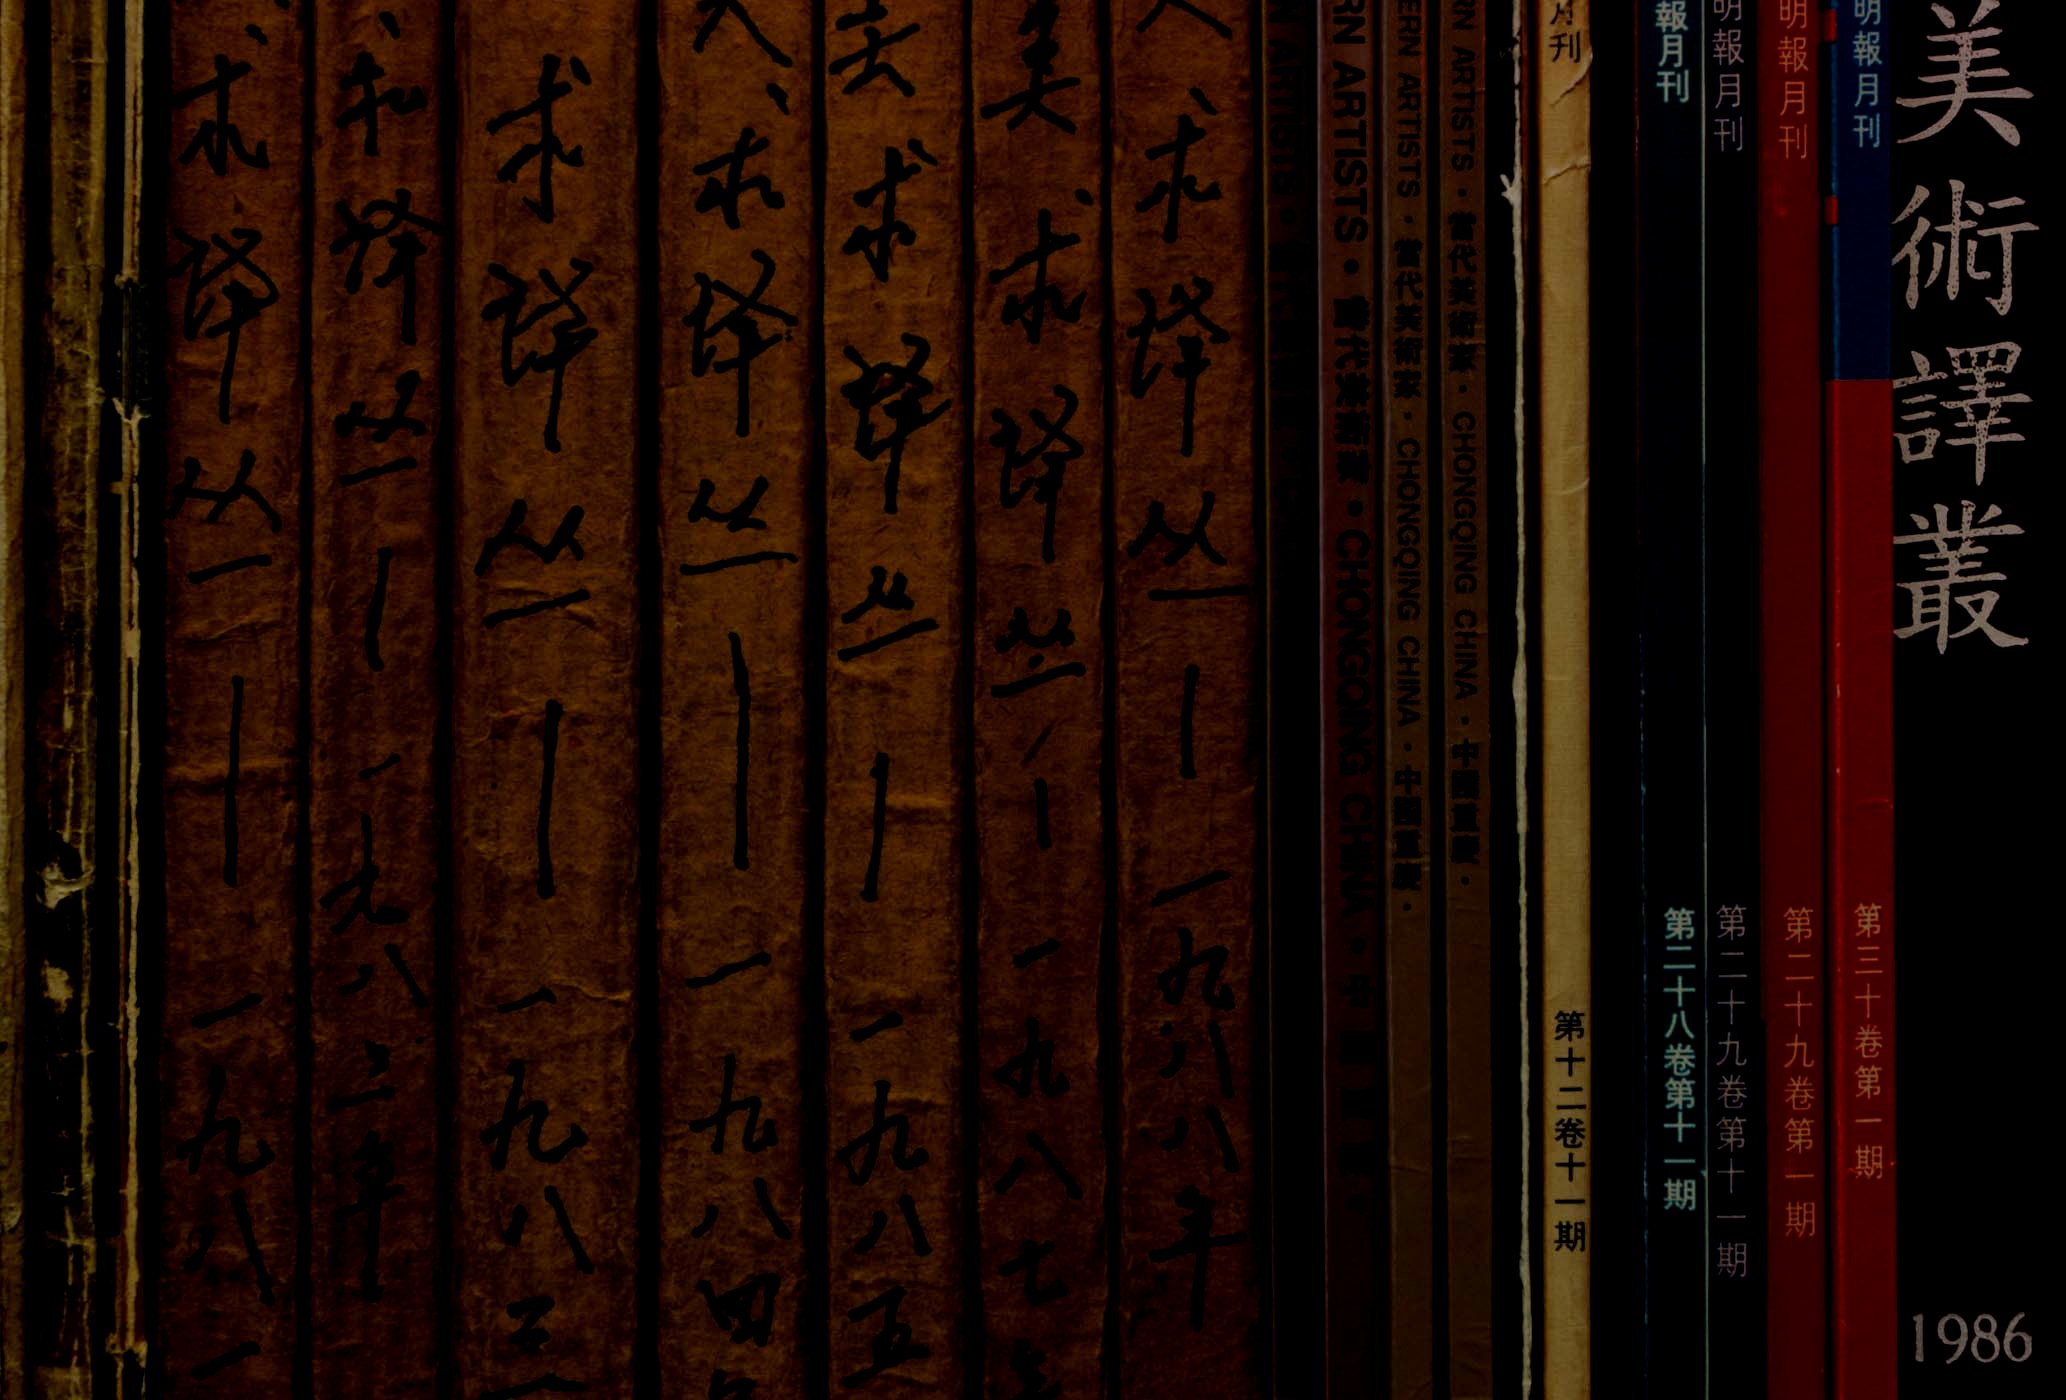 术译丛——一九八一
术译丛——一九八二年
术译丛——一九八三
术译丛——一九八四年
美术译丛——一九八五
美术译丛——一九八七年
术译丛——一九八八年
ARTISTS
ARTISTS · 當代美術家 · CHONGQING CHINA · 中國重慶 ·
ARTISTS · 當代美術家 · CHONGQING CHINA · 中國重慶 ·
ARTISTS · 當代美術家 · CHONGQING CHINA · 中國重慶 ·
月刊 第十二卷十一期
報月刊 第二十八卷第十一期
明報月刊 第二十九卷第十一期
明報月刊 第二十九卷第一期
明報月刊 第三十卷第一期
美術譯叢 1986